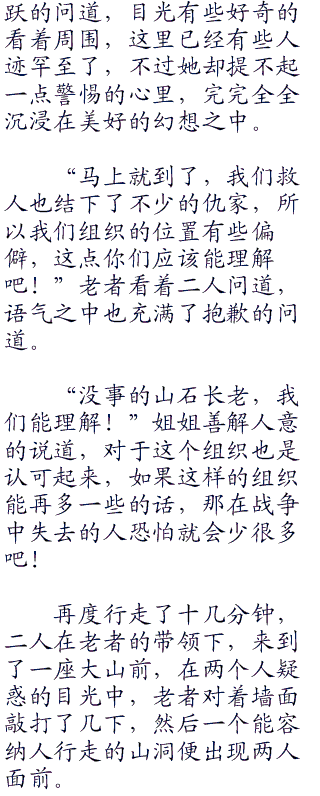 跃的问道，目光有些好奇的
看着周围，这里已经有些人
迹罕至了，不过她却提不起
一点警惕的心里，完完全全
沉浸在美好的幻想之中。
“马上就到了，我们救
人也结下了不少的仇家，所
以我们组织的位置有些偏
僻，这点你们应该能理解
吧！”老者看着二人问道，
语气之中也充满了抱歉的问
道。
“没事的山石长老，我
们能理解！”姐姐善解人意
的说道，对于这个组织也是
认可起来，如果这样的组织
能再多一些的话，那在战争
中失去的人恐怕就会少很多
吧！
再度行走了十几分钟，
二人在老者的带领下，来到
了一座大山前，在两个人疑
惑的目光中，老者对着墙面
敲打了几下，然后一个能容
纳人行走的山洞便出现两人
面前。